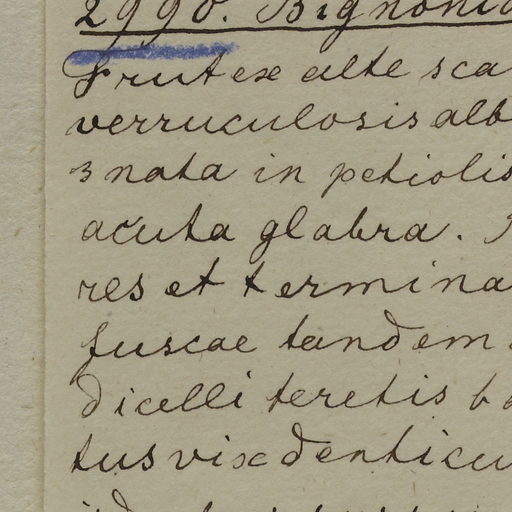 2990. Bignonia
Frutex alte sca
verruculosis alb
3 nata in petiolis
acuta glabra.
res et termina
fuscae tandem
dicelli teretis
tus vix denticu